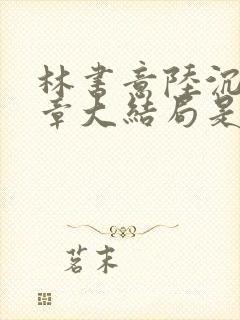 林书意陸沉
章大結局是
茗末